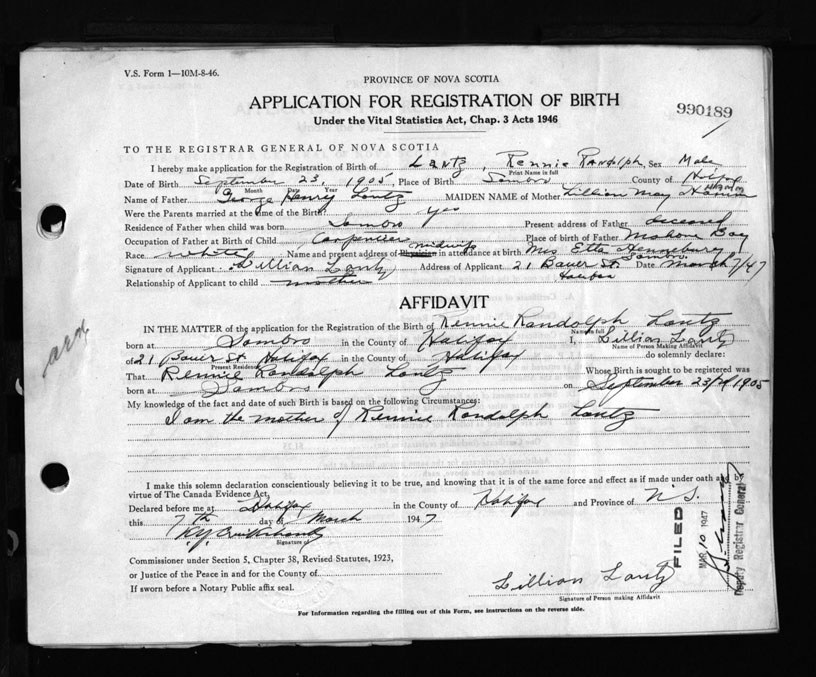 V.S. Form 1—10M-8-46.
PROVINCE OF NOVA SCOTIA
APPLICATION FOR REGISTRATION OF BIRTH
Under the Vital Statistics Act, Chap. 3 Acts 1946
990189
TO THE REGISTRAR GENERAL OF NOVA SCOTIA
I hereby make application for the Registration of Birth of Lantz, Rennie Randolph, Sex Male
Month Day Year Print Name in full
Date of Birth September 23, 1905, Place of Birth Sambro County of Halifax
Name of Father George Henry Lantz MAIDEN NAME of Mother Lillian May
Were the Parents married at the time of the Birth? yes
Residence of Father when child was born Sambro Present address of Father deceased
Occupation of Father at Birth of Child Carpenter Place of birth of Father Mahone Bay
Race White Name and present address of Physician midwife in attendance at birth Mrs Etta Sambro
Signature of Applicant Lillian Lantz Address of Applicant 21 Bauer St. Halifax Date March 7/47
Relationship of Applicant to child mother
AFFIDAVIT
IN THE MATTER of the application for the Registration of the Birth of Rennie Randolph Lantz
Name in full
born at Sambro in the County of Halifax I, Lillian Lantz
Name of Person Making Affidavit
of 21 Bauer St Halifax in the County of Halifax do solemnly declare:
Present Residence
That Rennie Randolph Lantz Whose Birth is sought to be registered was
born at Sambro on September 23rd 1905
My knowledge of the fact and date of such Birth is based on the following Circumstances:
I am the mother of Rennie Randolph Lantz
I make this solemn declaration conscientiously believing it to be true, and knowing that it is of the same force and effect as if made under oath and by
virtue of The Canada Evidence Act.
Declared before me at Halifax in the County of Halifax and Province of N.S.
this 7th day of March 1947
Signature of
Commissioner under Section 5, Chapter 38, Revised Statutes, 1923,
or Justice of the Peace in and for the County of
If sworn before a Notary Public affix seal.
Lillian Lantz
Signature of Person making Affidavit
FILED
MAR 10 1947
Deputy Registrar General
For Information regarding the filling out of this Form, see instructions on the reverse side.